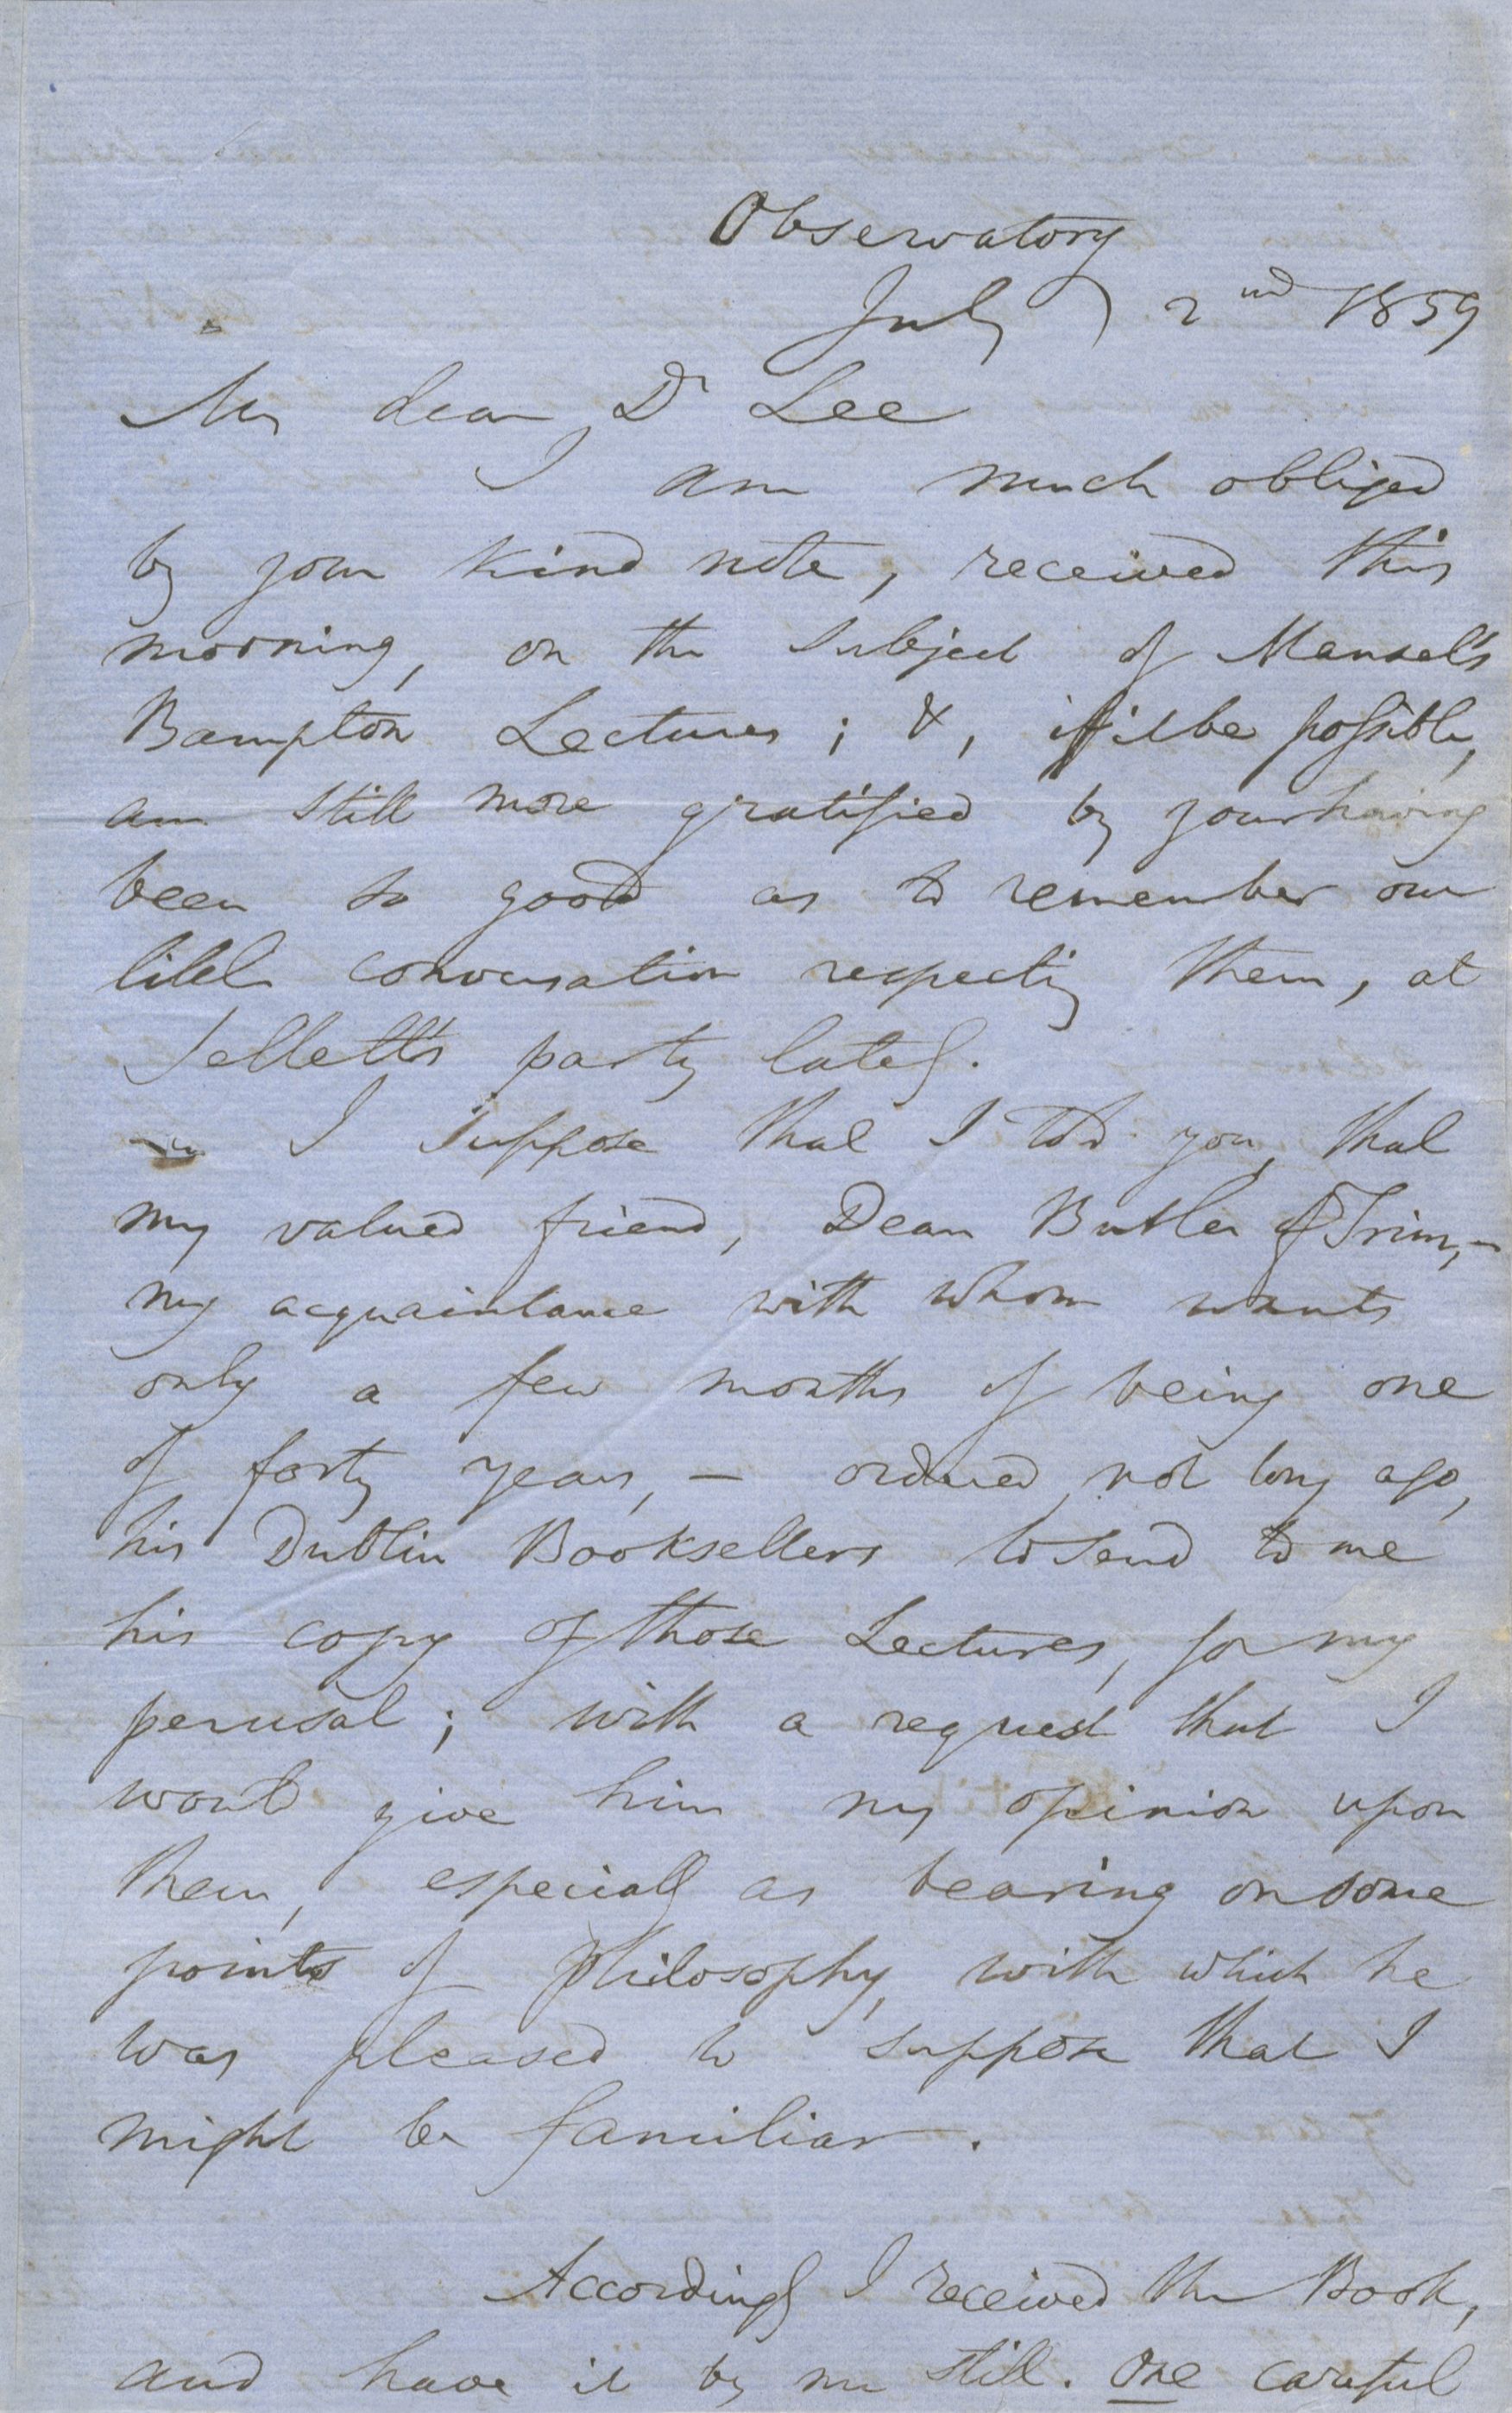 Observatory
July 2nd 1859
My dear Dr Lee
I am much obliged
by your kind note, received this
morning, on the subject of Mansel's
Bampton Lectures; &, if it be possible,
am still more gratified by your having
been so good as to remember our
little conversation respecting them, at
Jellett's party lately.
I suppose that I told you, that
my valued friend, Dean Butler of Trim, -
my acquaintance with whom wants
only a few months of being one
of forty years, - ordered, not long ago,
his Dublin Booksellers to send to me
his copy of those Lectures, for my
perusal; with a request that I
would give him my opinion upon
them, especially as bearing on some
points of philosophy, with which he
was pleased to suppose that I
might be familiar.
Accordingly I received the Book,
and have it by me still. One careful